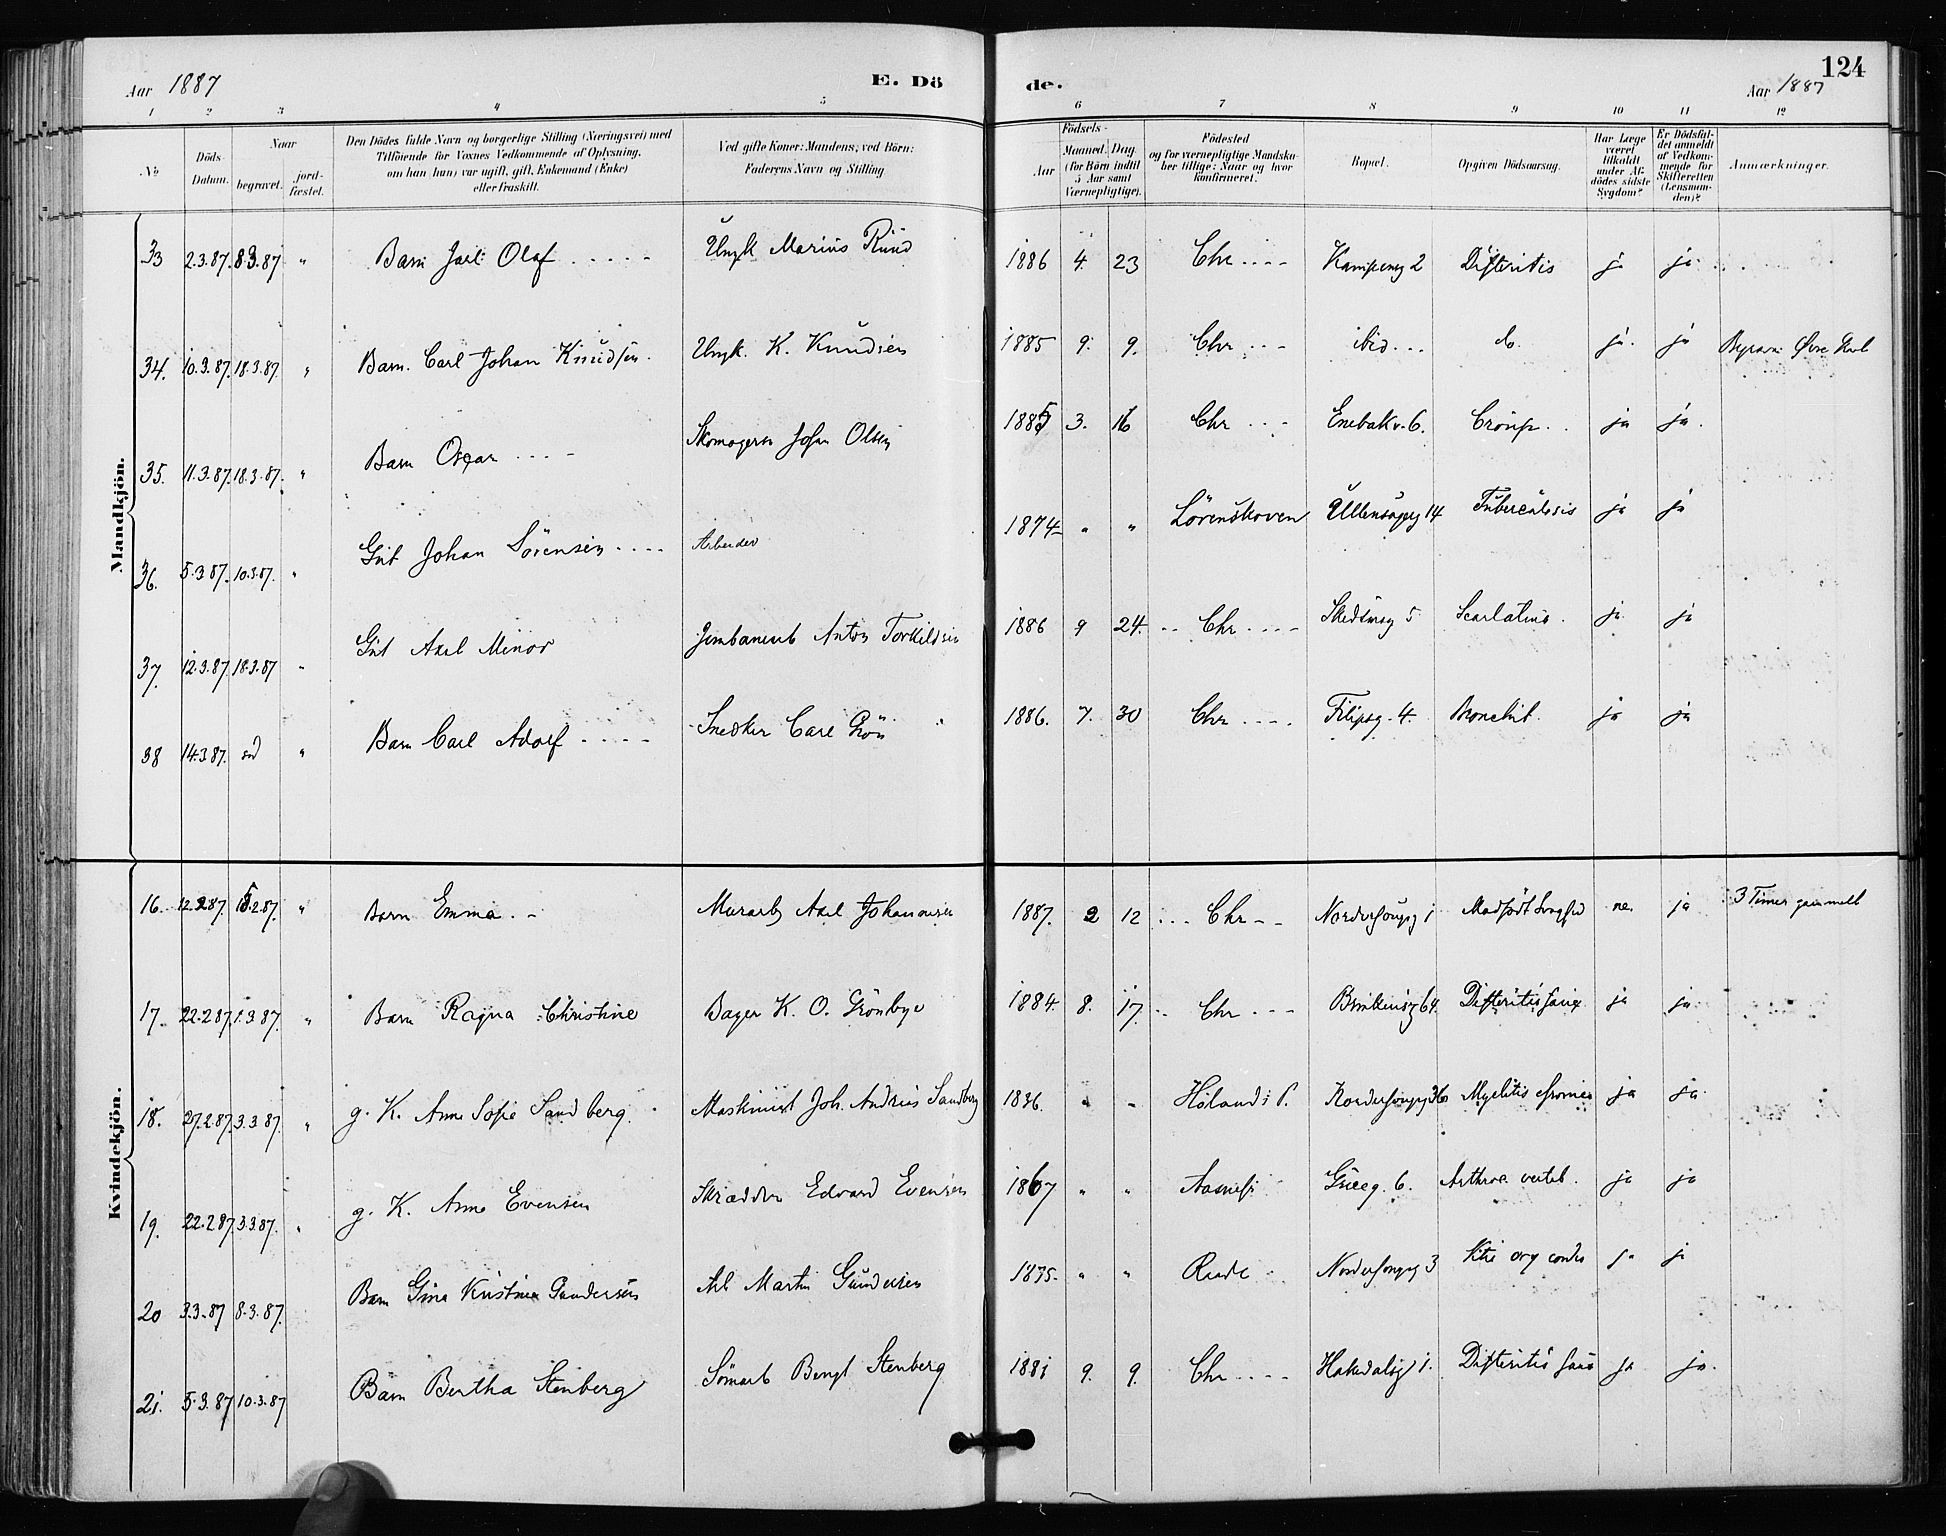 Aar 1887 E. Dö de. Aar 1887 124
1 2 3 4 5 6 7 8 9 10 11 12
No
Döds-
Datum.
Naar
begravet.
jord-
fæstet.
Den Dödes fulde Navn og borgerlige Stilling (Næringsvei) med
Tilföiende for Voxnes Vedkommende af Oplysning,
om han (hun) var ugift, gift, Enkemand (Enke)
eller fraskilt.
Ved gifte Koner: Mandens; ved Börn:
Faderens Navn og Stilling
Födsels-
Aar
Maaned. Dag.
(for Börn indtil
5 Aar samt
Værnepligtige).
Födested
og for værnepligtige Mandskaber tillige: Naar og hvor
konfirmeret.
Bopæl.
Opgiven Dödsaarsag.
Har Læge
været
tilkaldt
under Afdödes sidste
Sygdom?
Er Dödsfaldet anmeldt
af Vedkommende for
Skifteretten
(Lensmanden)?
Anmærkninger.
Mandkjön.
33 2.3.87. 8.3.87 " Barn Jarl Olaf Marius Ruud 1886 4. 23 Chr Kampeng 2 Difteritis ja ja
34. 10.3.87. 18.3.87. " Barn. Carl Johan Knudsen. K. Knudsen 1885 9. 9. Chr ibid do. ja. ja
35. 11.3.87. 18.3.87. " Barn Oscar Skomager John Olsen 1885 3. 16 Chr Enebakv. 6. Croup ja ja.
36. 5.3.87. 10.3.87. " Gut Johan Sörensen Arbeider 1874 " " Lörenskoven 14 Tuberculosis ja ja
37. 12.3.87. 18.3.87 " Gut Axel Minor Anton Torkildsen 1886 9 24. Chr 5 Scarlatina. ja ja
38 14.3.87. " Barn Carl Adolf Snedker Carl Grön 1886. 7. 30 Chr Filipsg. 4. Bronchit. ja ja
Kvindekjön.
16. 12.2.87. 18.2.87. " Barn Emma. Murarb Axel Johansen 1887. 2 12 Chr 1 ja 3 Timer gammelt
17. 22.2.87. 1.3.87. " Barn Ragna Christine Bager K. O. Grönbye 1884. 8. 17. Chr 64. Difteritis ja ja
18. 27.2.87. 3.3.87. " g. K. Anne Sofie Sandberg. Maskinist Joh. Andreas Sandberg 1836. " " Hölands P. 36 Myelitis ja ja
19. 22.2.87. 3.3.87. " g. K. Anne Evensen Skrædder Edvard Evensen 1867 " " 6. ja ja
20 3.3.87 8.3.87. Barn Gina Kristine Gundersen Arb Martin Gundersen 1875. " " 3 ja ja
21. 5.3.87 10.3.87 Barn Bertha Stenberg Sömarb Bengt Stenberg 1881 9. 9. Chr Hakedalsg 1. Difteritis ja ja.